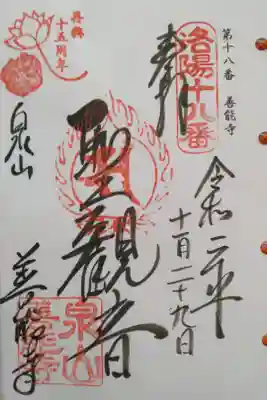 第十八番 善能寺
奉拝
洛陽十八番
令和二年
十一月二十九日
聖観音
再興
十五周年
泉山
善能寺
泉山
善能寺